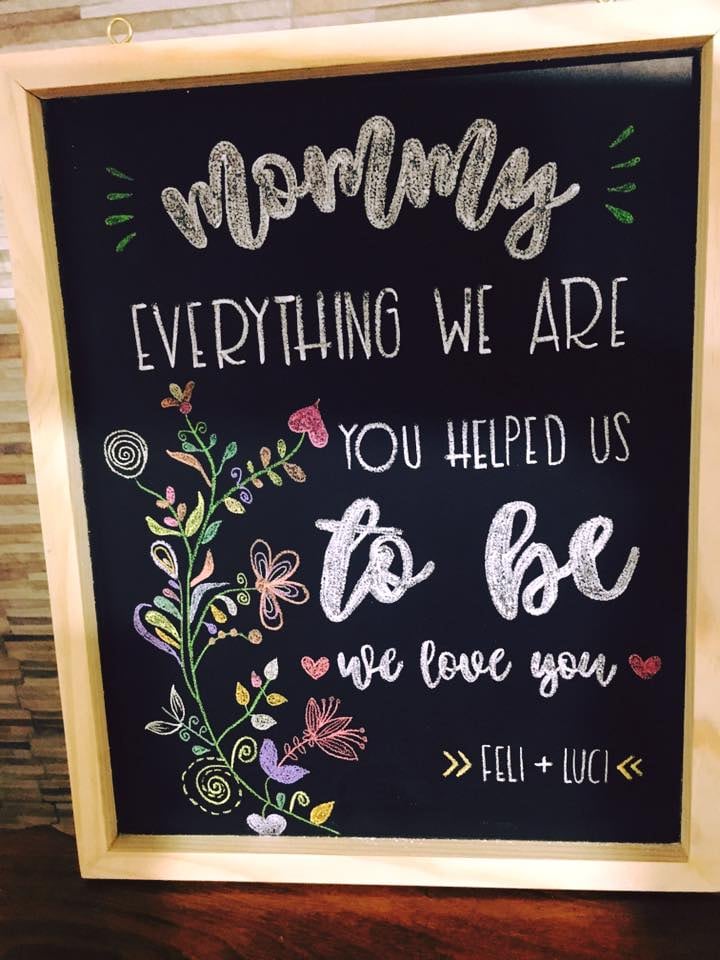 mommy
EVERYTHING WE ARE
YOU HELPED US
to be
we love you
FELI + LUCI